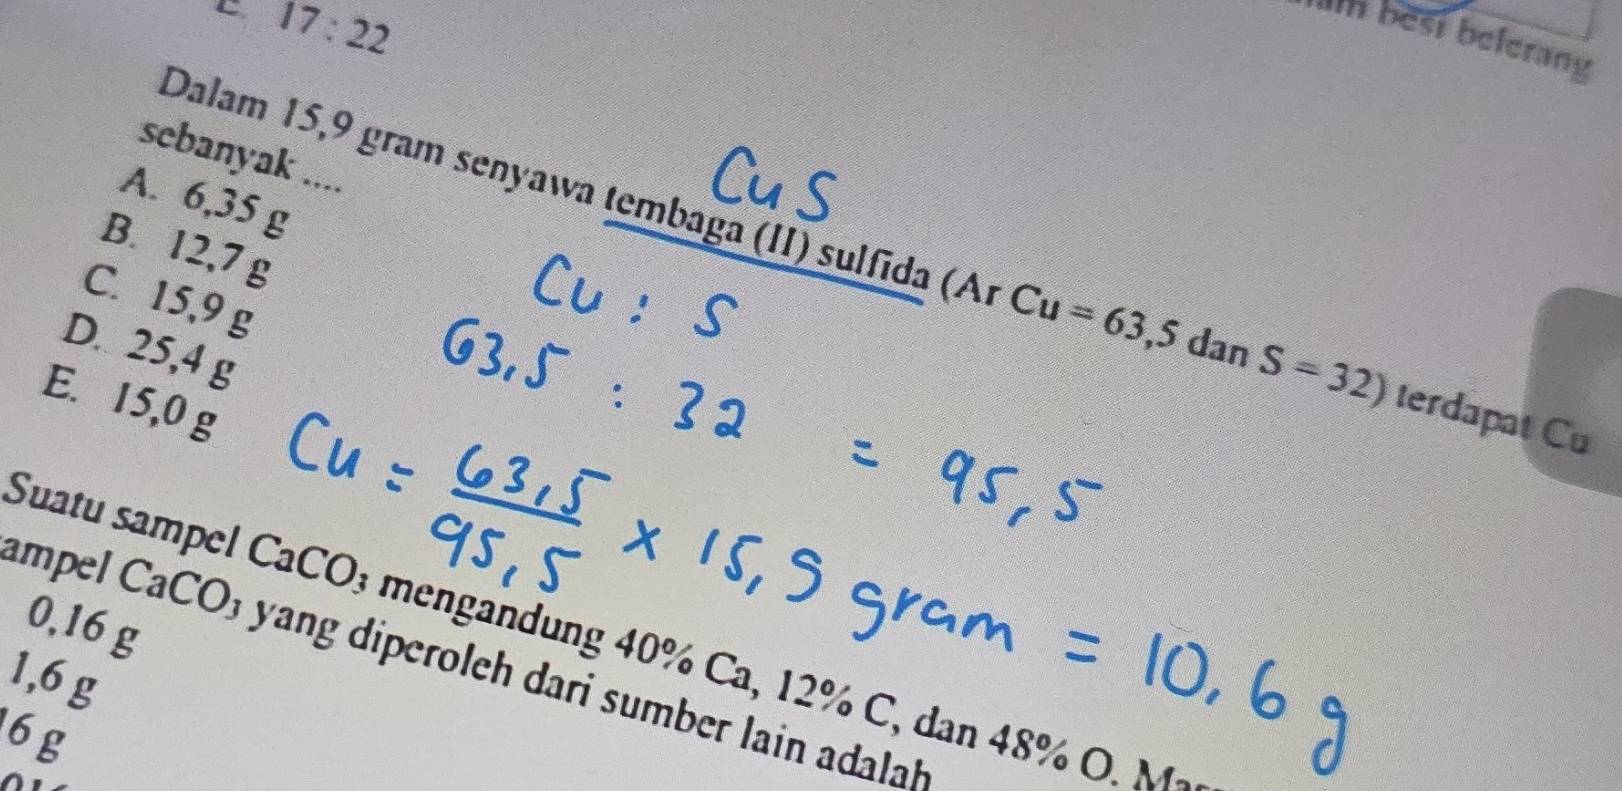 17 : 22
besi belerang
Dalam 15,9 gram senyawa tembaga (II) sulfida (Ar Cu = 63,5 dan S = 32) terdapat Cu
sebanyak ....
A. 6,35 g
B. 12,7 g
C. 15,9 g
D. 25,4 g
E. 15,0 g
CuS
Cu : S
63,5 : 32 = 95,5
Cu = 63,5 / 95,5 x 15,9 gram = 10,6 g
Suatu sampel CaCO₃ mengandung 40% Ca, 12% C, dan 48% O.
ampel CaCO₃ yang diperoleh dari sumber lain adalah
0,16 g
1,6 g
16 g